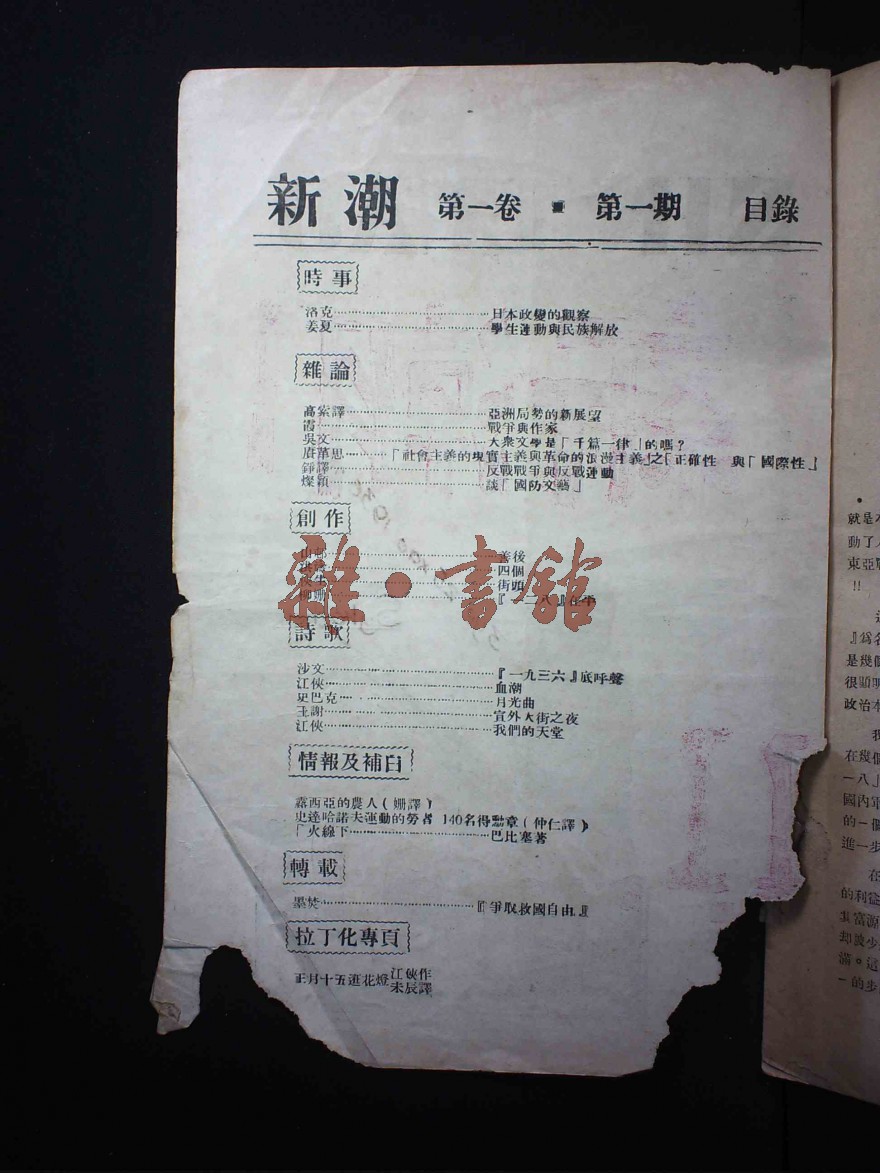 新潮 第一卷·第一期 目錄
時事
洛克……日本政變的觀察
姜夏……學生運動與民族解放
雜論
高索譯……亞洲局勢的新展望
霞……戰爭與作家
吳文……大衆文學是「千篇一律」的嗎?
唐革思……「社會主義的現實主義與革命的浪漫主義」之「正確性 與「國際性」
錚譯……反戰戰爭與反戰運動
燦穎……談「國防文藝」
創作
……善後
……四個
……街頭
柳姍……『一二八』
詩歌
沙文……『一九三六』底呼聲
江俠……血潮
史巴克……月光曲
玉謝……宣外大街之夜
江俠……我們的天堂
情報及補白
露西亞的農人(姍譯)
史達哈諾夫運動的勞者 140名得勳章(仲仁譯)
「火線下……巴比塞著
轉載
墨焚……『爭取救國自由』
拉丁化專頁
正月十五逛花燈江俠作
未辰譯
雜·書館
就是
動了
東亞戰
!!
『爲名
是幾個
很顯明
政治本
我
在幾個
一八」
國內軍
的一個
進一步
在
的利益
其富源
却減少
滿。這
一的步